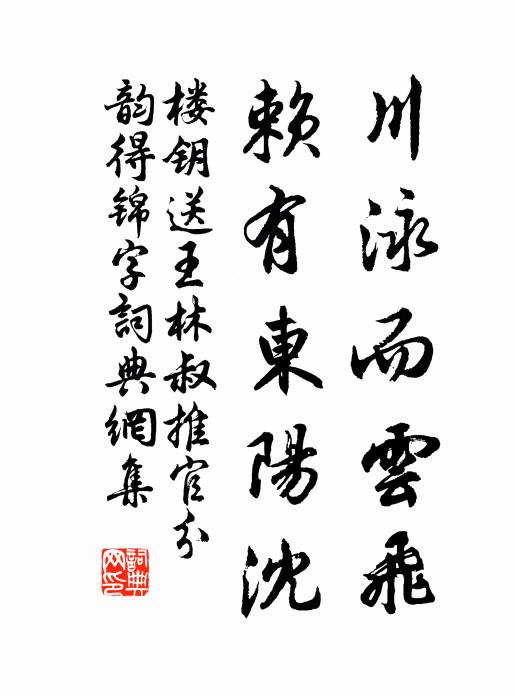 川泳而雲飛
賴有東陽沈
楼钥送王林叔推官分
韵得锦字詞典網集
詞典网印